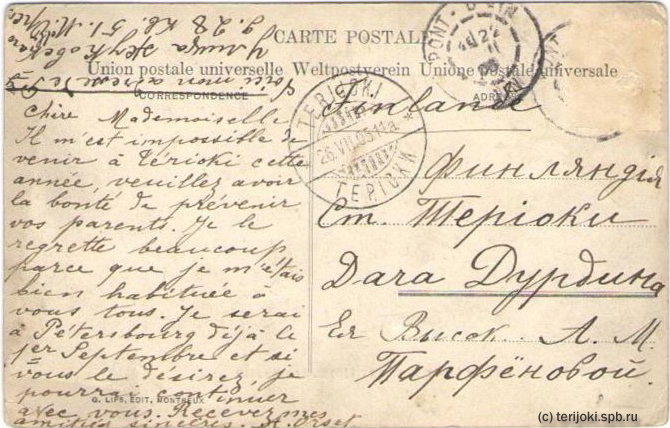 CARTE POSTALE
Union postale universelle Weltpostverein Unione postale universale
CORRESPONDENCE
ADRE
Chère Mademoiselle
Il m'est impossible de
venir à Térioki cette
année, veuillez avoir
la bonté de prévenir
vos parents. Je le
regrette beaucoup
parce que je m'étais
bien habituée à
vous tous. Je serai
à Pétersbourg déjà le
1er Septembre et si
vous le désirez je
pourrai continuer
avec vous. Recevez mes
amitiés sincères. A. Orset
G. LIPS, EDIT. MONTREUX
TERIOKI
26.VII.05.11a.
ТЕРІОКИ
PONT-D'AIN
Finlande
Финляндія
Ст. Теріоки
Дача Дурдина
Ея Высок. А. М.
Парфёновой.
(c) terijoki.spb.ru